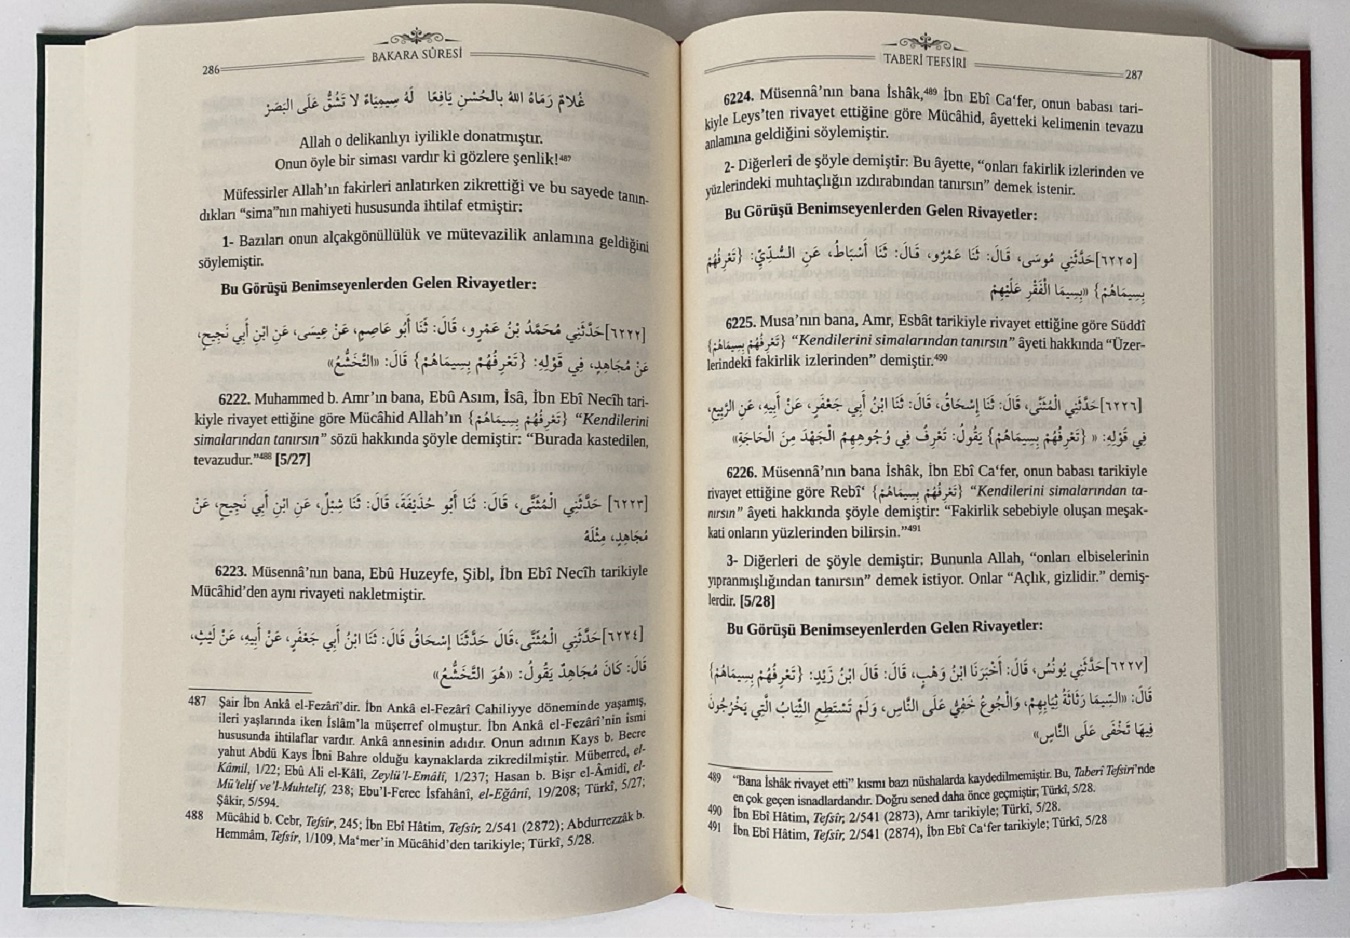 286
BAKARA SÛRESİ
غُلَامٌ رَمَاهُ اللهُ بِالحُسْنِ يَافِعًا لَهُ سِيمِيَاءُ لَا تَشُقُّ عَلَى البَصَرْ
Allah o delikanlıyı iyilikle donatmıştır.
Onun öyle bir siması vardır ki gözlere şenlik!487
Müfessirler Allah’ın fakirleri anlatırken zikrettiği ve bu sayede tanın-
dıkları “sima”nın mahiyeti hususunda ihtilaf etmiştir:
1- Bazıları onun alçakgönüllülük ve mütevazilik anlamına geldiğini
söylemiştir.
Bu Görüşü Benimseyenlerden Gelen Rivayetler:
[٦٢٢٢]حَدَّثَنِي مُحَمَّدُ بْنُ عَمْرٍو، قَالَ: ثَنَا أَبُو عَاصِمٍ، عَنْ عِيسَى، عَنِ ابْنِ أَبِي نَجِيحٍ،
عَنْ مُجَاهِدٍ، فِي قَوْلِهِ: {تَعْرِفُهُمْ بِسِيمَاهُمْ} قَالَ: «التَّخَشُّعُ»
6222. Muhammed b. Amr’ın bana, Ebû Asım, Îsâ, İbn Ebî Necîh tari-
kiyle rivayet ettiğine göre Mücâhid Allah’ın {تَعْرِفُهُمْ بِسِيمَاهُمْ} “Kendilerini
simalarından tanırsın” sözü hakkında şöyle demiştir: “Burada kastedilen,
tevazudur.”488 [5/27]
[٦٢٢٣] حَدَّثَنِي الْمُثَنَّى، قَالَ: ثَنَا أَبُو حُذَيْفَةَ، قَالَ: ثَنَا شِبْلٌ، عَنِ ابْنِ أَبِي نَجِيحٍ، عَنْ
مُجَاهِدٍ، مِثْلَهُ
6223. Müsennâ’nın bana, Ebû Huzeyfe, Şibl, İbn Ebî Necîh tarikiyle
Mücâhid’den aynı rivayeti nakletmiştir.
[٦٢٢٤]حَدَّثَنِي الْمُثَنَّى،قَالَ حَدَّثَنَا إِسْحَاقُ قَالَ: ثَنَا ابْنُ أَبِي جَعْفَرٍ، عَنْ أَبِيهِ، عَنْ لَيْثٍ،
قَالَ: كَانَ مُجَاهِدٌ يَقُولُ: «هُوَ التَّخَشُّعُ»
487 Şair İbn Ankâ el-Fezârî’dir. İbn Ankâ el-Fezârî Cahiliyye döneminde yaşamış,
ileri yaşlarında iken İslâm’la müşerref olmuştur. İbn Ankâ el-Fezârî’nin ismi
hususunda ihtilaflar vardır. Ankâ annesinin adıdır. Onun adının Kays b. Becre
yahut Abdü Kays İbni Bahre olduğu kaynaklarda zikredilmiştir. Müberred, el-
Kâmil, 1/22; Ebû Ali el-Kâlî, Zeylü’l-Emâlî, 1/237; Hasan b. Bişr el-Âmidî, el-
Mü’telif ve’l-Muhtelif, 238; Ebu’l-Ferec İsfahânî, el-Eğânî, 19/208; Türkî, 5/27;
Şâkir, 5/594.
488 Mücâhid b. Cebr, Tefsir, 245; İbn Ebî Hâtim, Tefsîr, 2/541 (2872); Abdurrezzâk b.
Hemmâm, Tefsîr, 1/109, Ma‘mer’in Mücâhid’den tarikiyle; Türkî, 5/28.
TABERÎ TEFSİRİ
287
6224. Müsennâ’nın bana İshâk,489 İbn Ebî Ca‘fer, onun babası tari-
kiyle Leys’ten rivayet ettiğine göre Mücâhid, âyetteki kelimenin tevazu
anlamına geldiğini söylemiştir.
2- Diğerleri de şöyle demiştir: Bu âyette, “onları fakirlik izlerinden ve
yüzlerindeki muhtaçlığın ızdırabından tanırsın” demek istenir.
Bu Görüşü Benimseyenlerden Gelen Rivayetler:
[٦٢٢٥]حَدَّثَنِي مُوسَى، قَالَ: ثَنَا عَمْرٌو، قَالَ: ثَنَا أَسْبَاطُ، عَنِ السُّدِّيِّ: {تَعْرِفُهُمْ
بِسِيمَاهُمْ} «بِسِيمَا الْفَقْرِ عَلَيْهِمْ
6225. Musa’nın bana, Amr, Esbât tarikiyle rivayet ettiğine göre Süddî
{تَعْرِفُهُمْ بِسِيمَاهُمْ} “Kendilerini simalarından tanırsın” âyeti hakkında “Üzer-
lerindeki fakirlik izlerinden” demiştir.490
[٦٢٢٦]حَدَّثَنِي الْمُثَنَّى، قَالَ: ثَنَا إِسْحَاقُ، قَالَ: ثَنَا ابْنُ أَبِي جَعْفَرٍ، عَنْ أَبِيهِ، عَنِ الرَّبِيعِ،
فِي قَوْلِهِ: « {تَعْرِفُهُمْ بِسِيمَاهُمْ} يَقُولُ: تَعْرِفُ فِي وُجُوهِهِمُ الْجَهْدَ مِنَ الْحَاجَةِ»
6226. Müsennâ’nın bana İshâk, İbn Ebî Ca‘fer, onun babası tarikiyle
rivayet ettiğine göre Rebî‘ {تَعْرِفُهُمْ بِسِيمَاهُمْ} “Kendilerini simalarından ta-
nırsın” âyeti hakkında şöyle demiştir: “Fakirlik sebebiyle oluşan meşak-
kati onların yüzlerinden bilirsin.”491
3- Diğerleri de şöyle demiştir: Bununla Allah, “onları elbiselerinin
yıpranmışlığından tanırsın” demek istiyor. Onlar “Açlık, gizlidir.” demiş-
lerdir. [5/28]
Bu Görüşü Benimseyenlerden Gelen Rivayetler:
[٦٢٢٧]حَدَّثَنِي يُونُسُ، قَالَ: أَخْبَرَنَا ابْنُ وَهْبٍ، قَالَ: قَالَ ابْنُ زَيْدٍ: {تَعْرِفُهُمْ بِسِيمَاهُمْ}
قَالَ: «السِّيمَا رَثَاثَةُ ثِيَابِهِمْ، وَالْجُوعُ خَفِيٌّ عَلَى النَّاسِ، وَلَمْ تَسْتَطِعِ الثِّيَابُ الَّتِي يَخْرُجُونَ
فِيهَا تَخْفَى عَلَى النَّاسِ»
489 “Bana İshâk rivayet etti” kısmı bazı nüshalarda kaydedilmemiştir. Bu, Taberî Tefsiri’nde
en çok geçen isnadlardandır. Doğru sened daha önce geçmiştir; Türkî, 5/28.
490 İbn Ebî Hâtim, Tefsîr, 2/541 (2873), Amr tarikiyle; Türkî, 5/28.
491 İbn Ebî Hâtim, Tefsîr, 2/541 (2874), İbn Ebî Ca‘fer tarikiyle; Türkî, 5/28